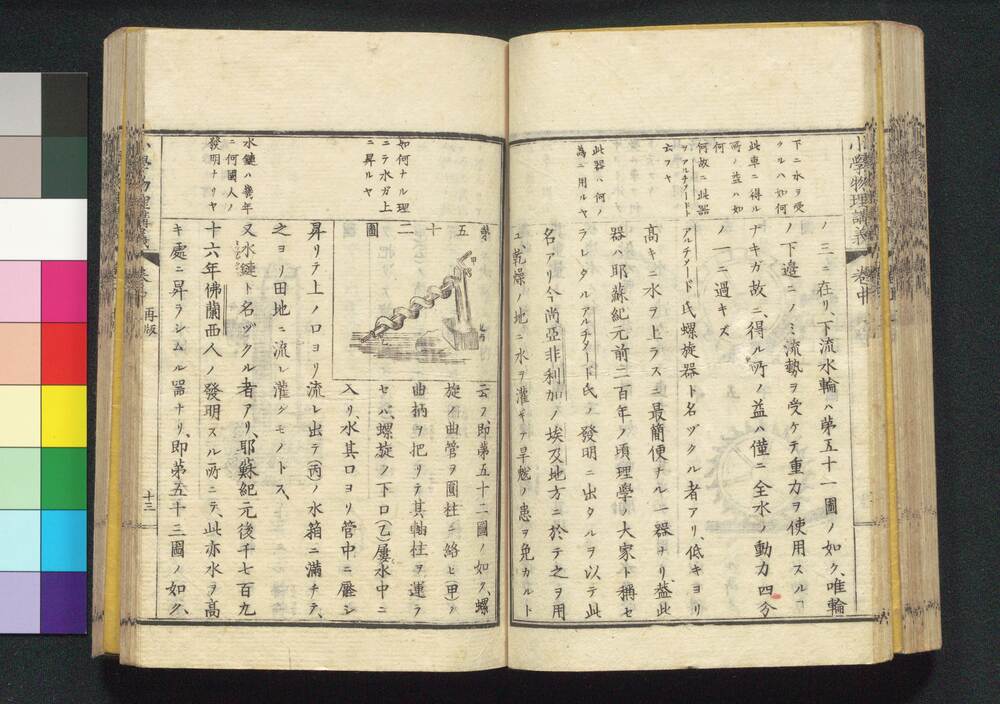 小學物理講義 卷中
下ニ水ヲ受
クルハ如何
此車ニ得ル
所ノ益ハ如
何
何故ニ此器
ヲアルチメードト
云フヤ
此器ハ何ノ
為ニ用ルヤ
ノ三ニ在リ、下流水輪ハ第五十一圖ノ如ク、唯輪
ノ下邉ニノミ流勢ヲ受ケテ重力ヲ使用スルヿ
ナキガ故ニ、得ル所ノ益ハ僅ニ全水ノ動力四分
ノ一ニ過キズ
アルチメード氏螺旋器ト名ヅクル者アリ、低キヨリ
高キニ水ヲ上ラスニ最簡便ナル一器ナリ、葢此
器ハ耶蘇紀元前二百年ノ頃理學ノ大家ト稱セ
ラレタルアルチメード氏ノ發明ニ出タルヲ以テ此
名アリ今尚亞非利加ノ埃及地方ニ於テ之ヲ用
ユ、乾燥ノ地ニ水ヲ灌ギテ旱魃ノ患ヲ免カルト
如何ナル理
ニテ水ガ上
ニ昇ルヤ
水鏈ハ幾年
ニ何國人ノ
發明ナリヤ
第五十二圖
云フ、即第五十二圖ノ如ク、螺
旋ノ曲管ヲ圓柱ニ絡ヒ(甲)ノ
曲柄ヲ把リテ其軸柱ヲ運ラ
セバ、螺旋ノ下口(乙)屢水中ニ
入リ、水其口ヨリ管中ニ壓シ
昇リテ上ノロヨリ流レ出テ(丙)ノ水箱ニ滿チテ、
之ヨリ田地ニ流レ灌グモノトス、
又水鏈ト名ヅクル者アリ、耶蘇紀元後千七百九
十六年佛蘭西人ノ發明スル所ニテ、此亦水ヲ高
キ處ニ昇ラシムル器ナリ、即第五十三圖ノ如ク、
卷中
再版
十三